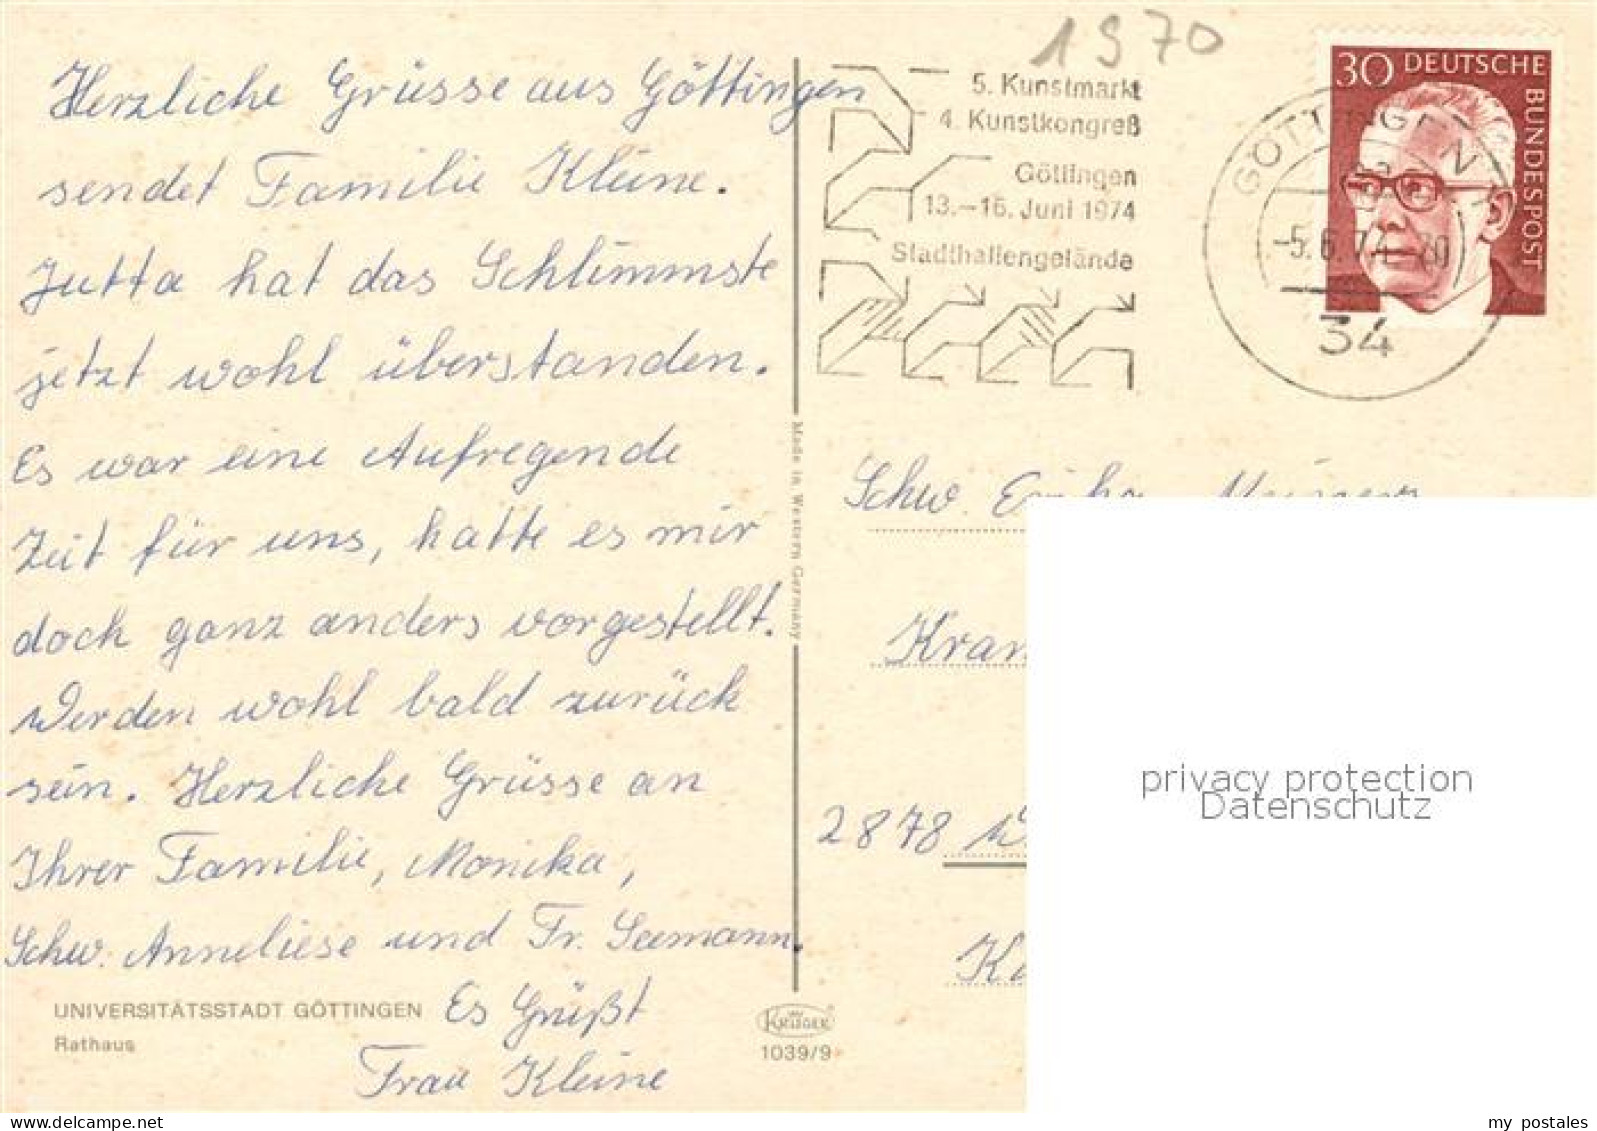 1970
Herzliche Grüsse aus Göttingen
sendet Familie Kleine.
Jutta hat das Schlimmste
jetzt wohl überstanden.
Es war eine Aufregende
Zeit für uns, hatte es mir
doch ganz anders vorgestellt.
Werden wohl bald zurück
sein. Herzliche Grüsse an
Ihrer Familie, Monika,
Schw. Anneliese und Fr. Seemann.
Es Grüßt
Frau Kleine
UNIVERSITÄTSSTADT GÖTTINGEN
Rathaus
Made in Western Germany
KRÜGER
1039/9
5. Kunstmarkt
4. Kunstkongreß
Göttingen
13.-16. Juni 1974
Stadthallengelände
GÖTTINGEN
-5.6.74-20
34
30 DEUTSCHE
BUNDESPOST
Schw.
2878
privacy protection
Datenschutz
my postales